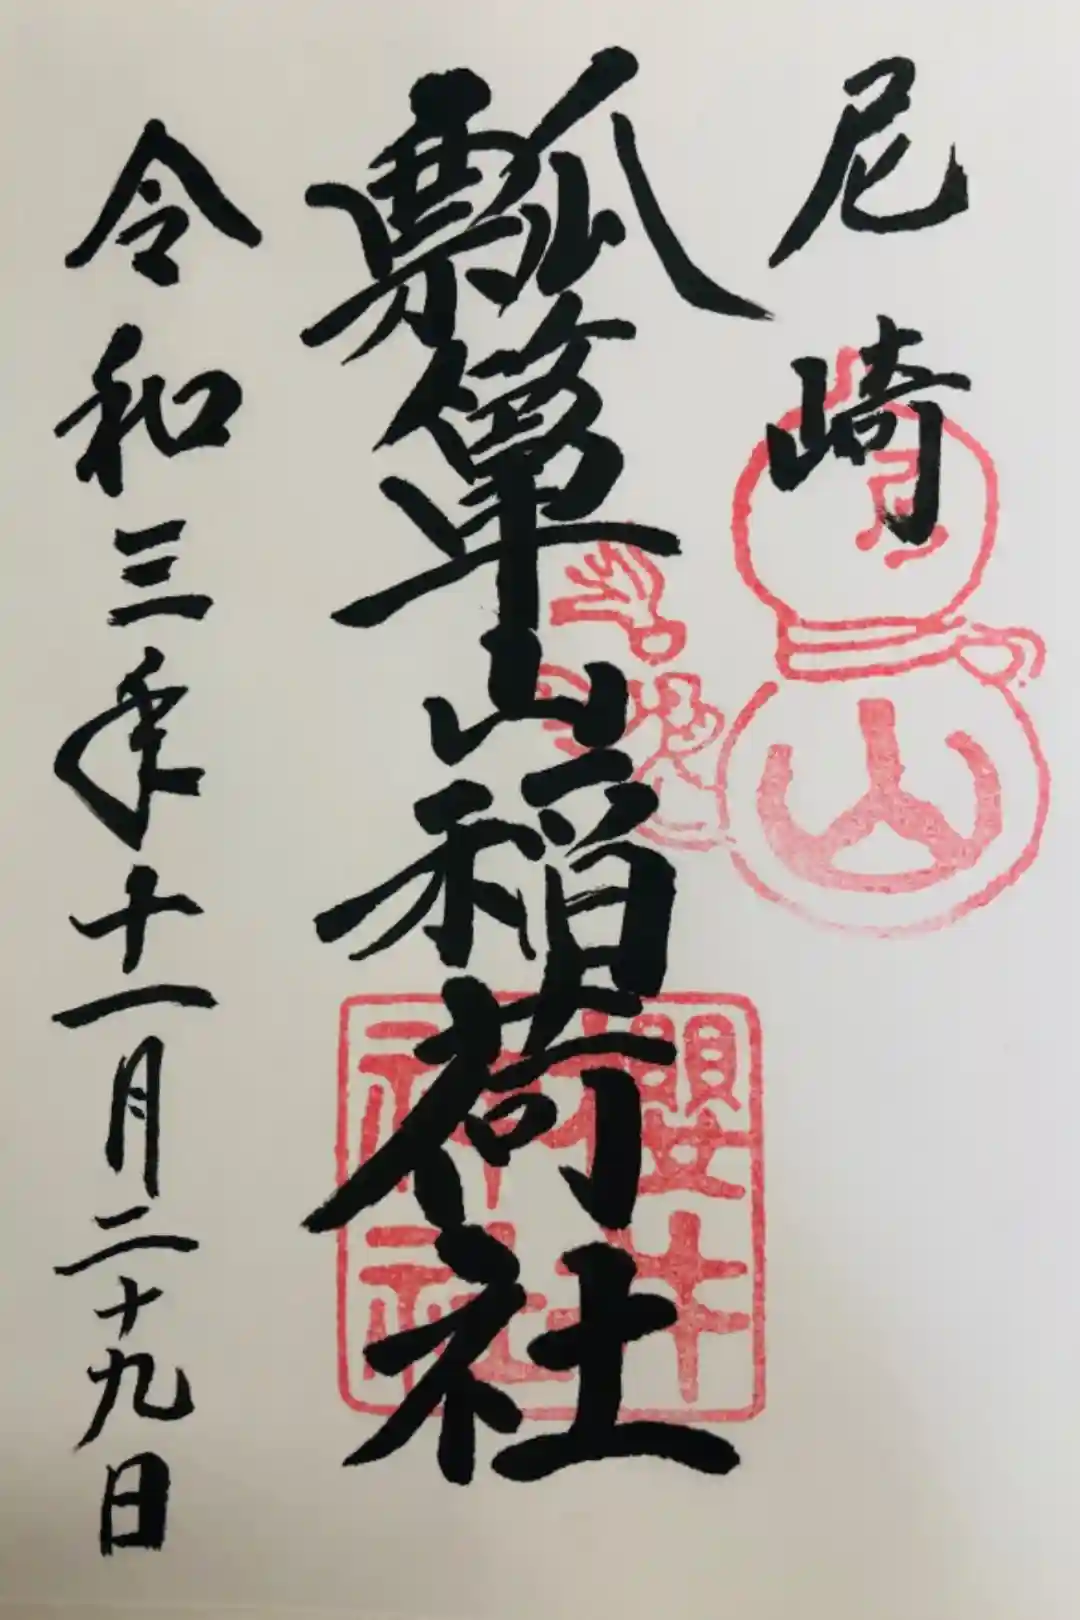 尼崎
瓢箪山稲荷社
令和三年十一月二十九日
山
櫻井
神社